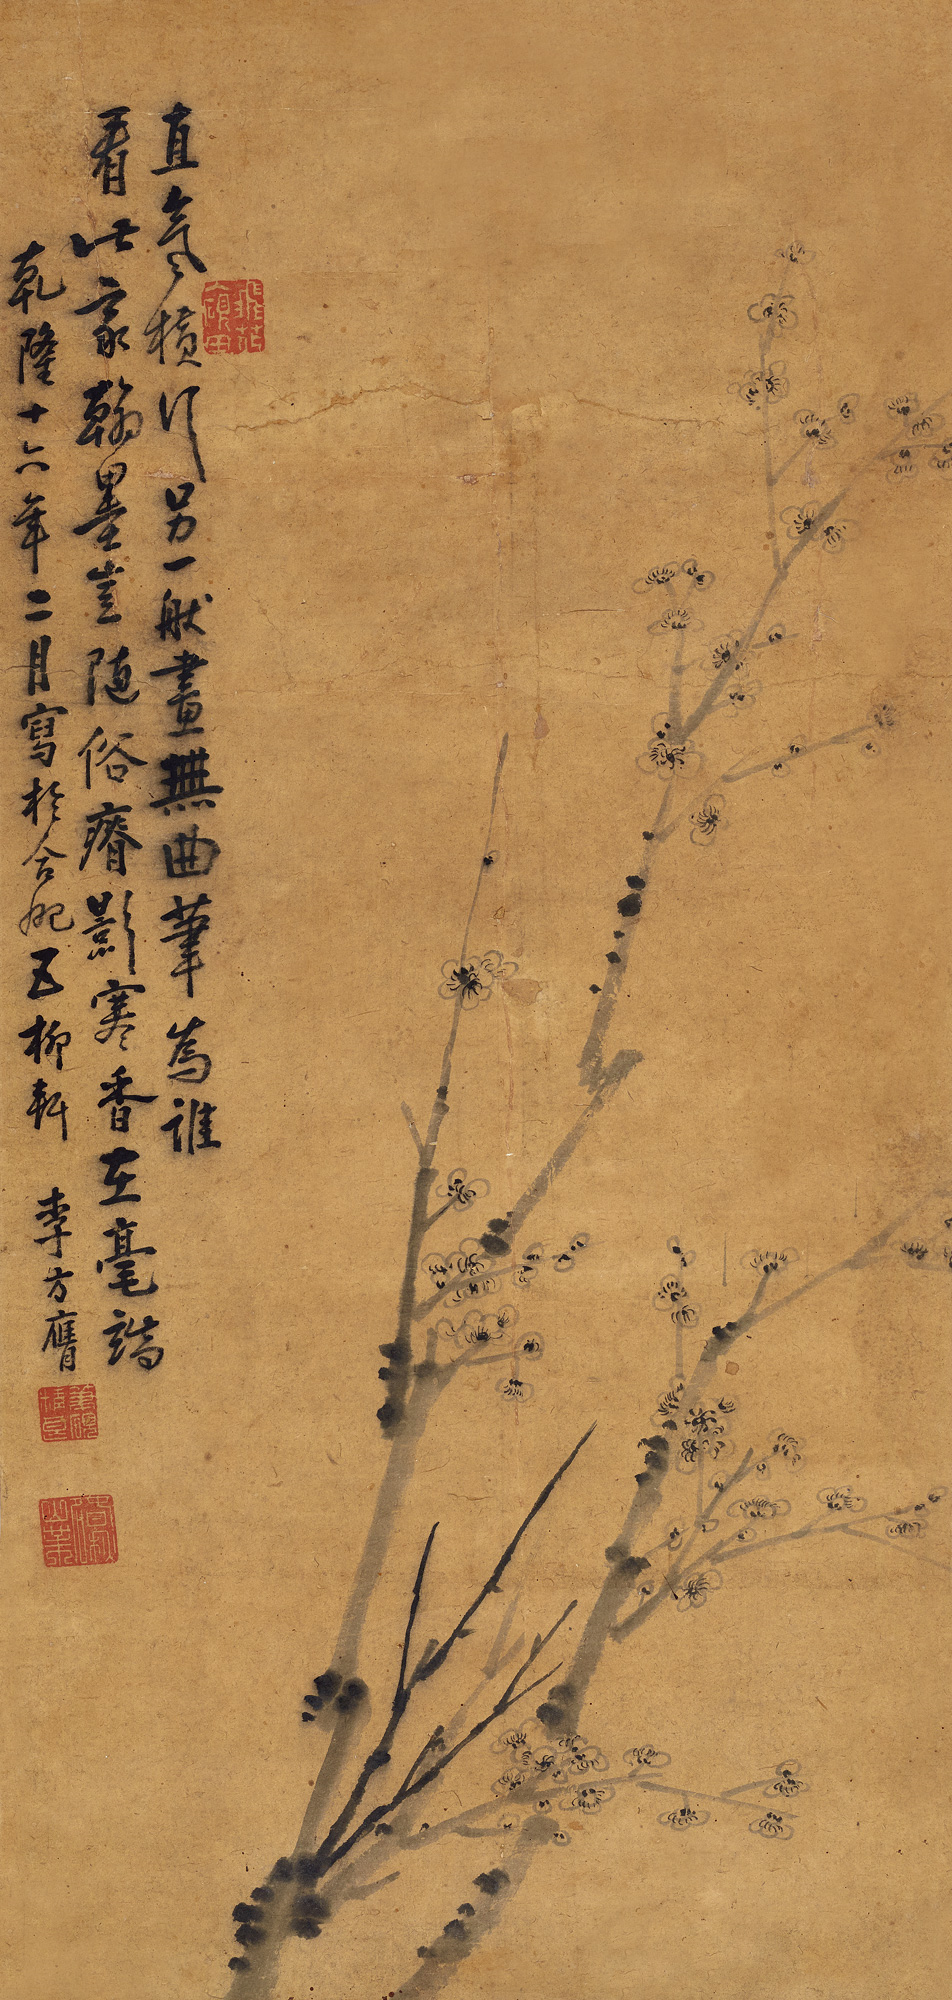 直氣橫行另一般畫無曲筆為誰
看此家翰墨豈隨俗瘠影寒香在毫端
乾隆十六年二月寫於合肥五柳軒
李方膺